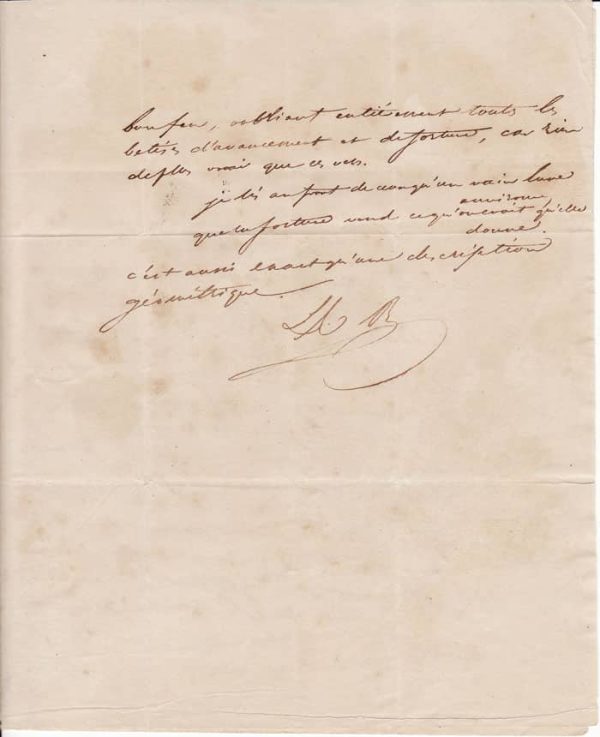 bon feu, oubliant entiérement touts les
betises d'avancement et de fortune, car rien
de plus vrai que ces vers.
je lis au front de ceux qu'un vain luxe
environne
que la fortune vend ce qu'on croit qu'elle
donne.
c'est aussi exact qu'une description
géométrique.
B